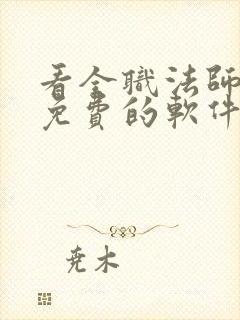 看全職法師
免費的軟件
堯木